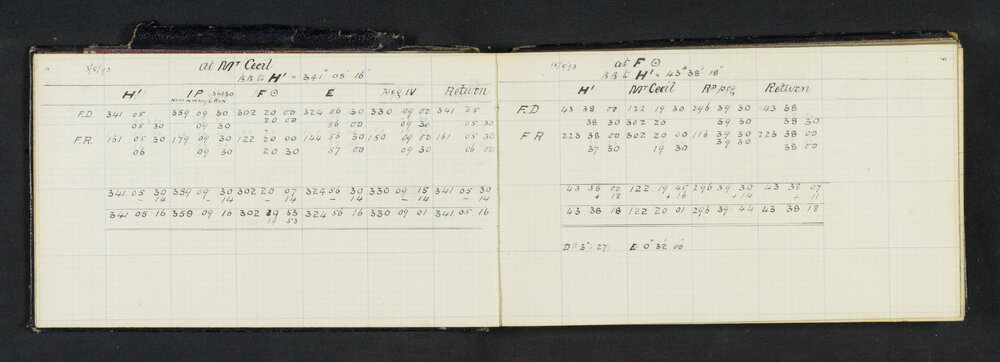 3/5/93 at Mt Cecil
BB to H' = 341° 05' 16"
H' IP 34230 F ⊙ E peg IV Return
F.D. 341 05 359 09 30 302 20 00 324 56 30 330 09 00 341 05
05 30 09 30 20 00 56 00 09 30 05 30
F.R. 161 05 30 179 09 30 122 20 00 144 56 30 150 09 00 161 05 30
06 09 30 20 30 57 00 09 30 06 00
341 05 30 359 09 30 302 20 07 324 56 30 330 09 15 341 05 30
- 14 - 14 - 14 - 14 - 14 - 14
341 05 16 358 09 16 302 19 53 324 56 16 330 09 01 341 05 16
19 53
5
/5/93 at F ⊙
BB to H' = 43° 38' 18"
H' Mt Cecil Rd peg Return
F.D 43 38 00 122 19 30 296 39 30 43 38
38 30 302 20 39 30 38 30
F R 223 38 00 302 20 00 116 39 30 223 38 00
37 30 19 30 39 30 38 00
43 38 00 122 19 45 296 39 30 43 38 07
+ 18 + 16 + 14 + 11
43 38 18 122 20 01 296 39 44 43 38 18
D 3° 27' E 0° 32' 00"